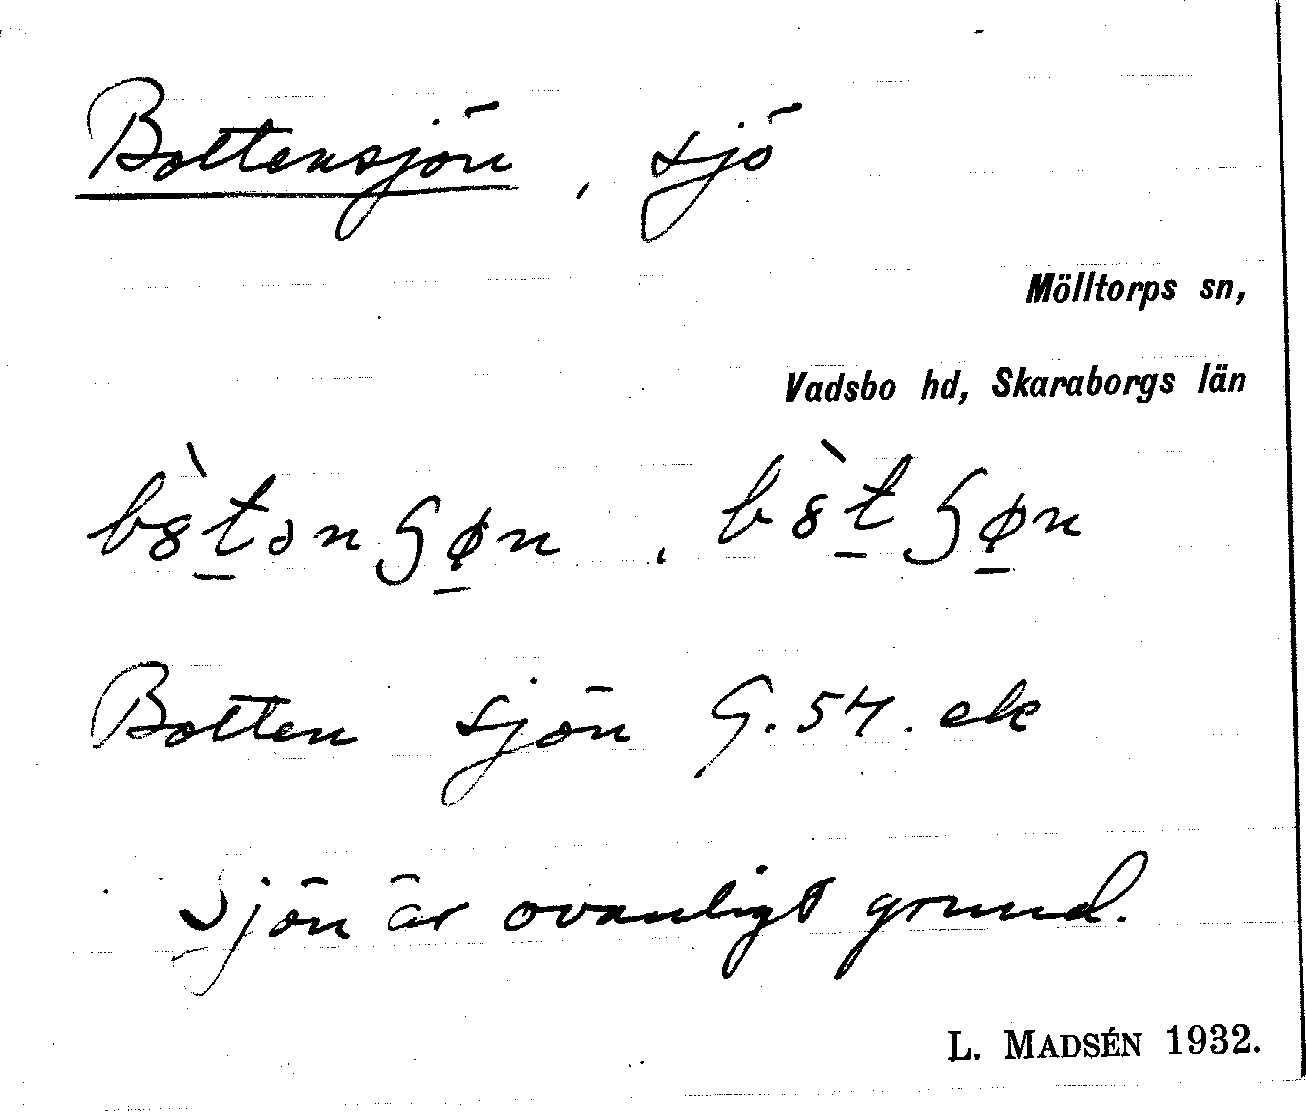 Bottensjön, sjö
Mölltorps sn,
Vadsbo hd, Skaraborgs län
Botten sjön G. 54. ek
Sjön är ovanligt grund.
L. MADSÉN 1932.